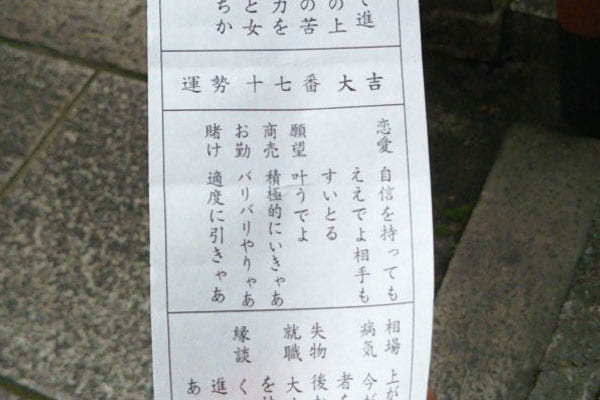 進
の上
の苦
力を
と女
ちか
運勢十七番大吉
恋愛 自信を持っても
ええでよ相手も
すいとる
願望 叶うでよ
商売 積極的にいきゃあ
お勤 バリバリやりゃあ
賭け 適度に引きゃあ
相場 上が
病気 今が
者を
失物 後
就職 大
を
縁談 く
進
あ